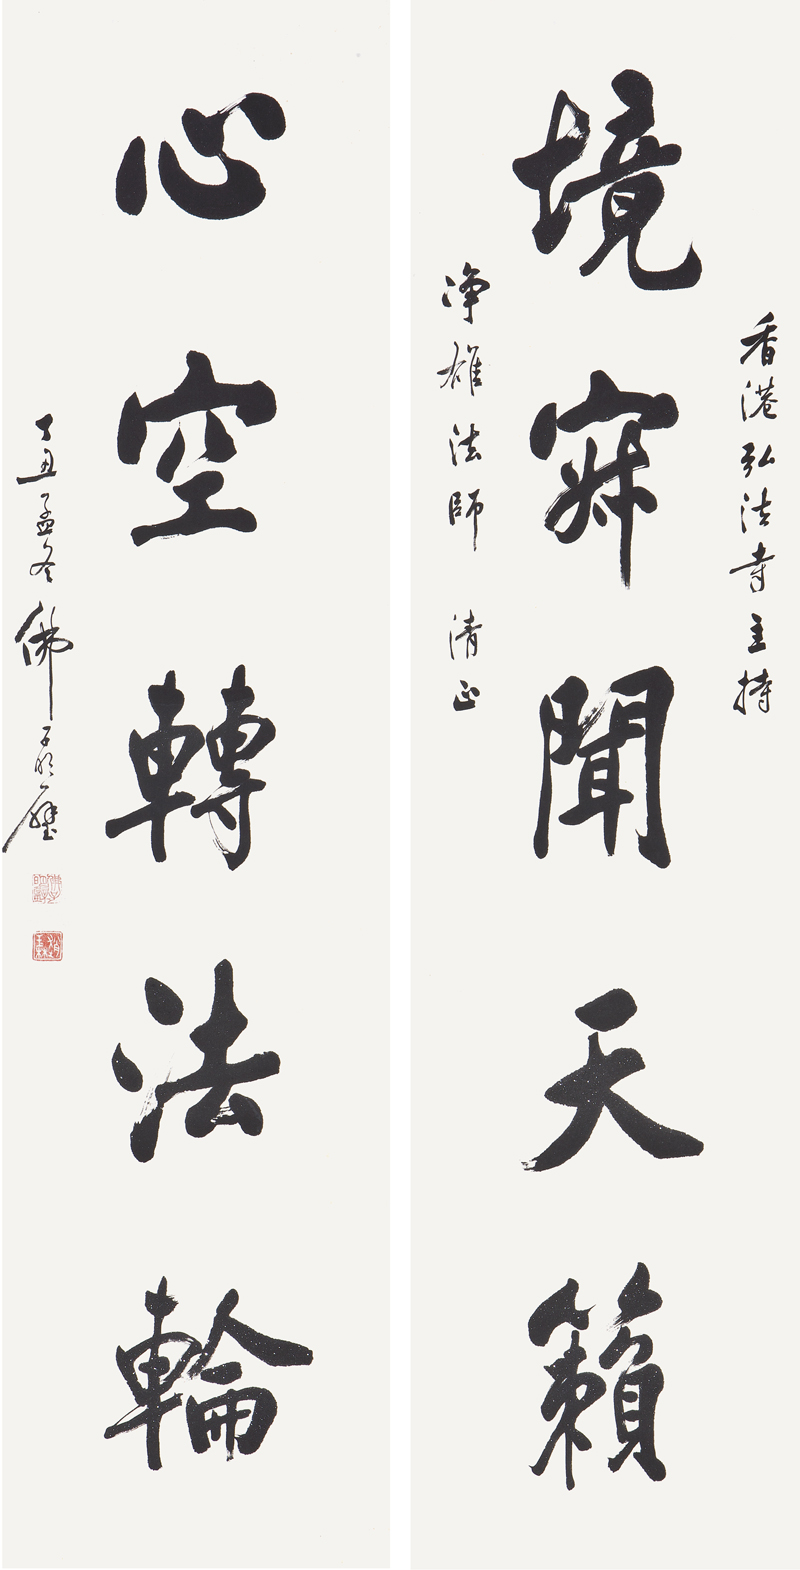 香港弘法寺主持
境寂聞天籟
净雄法師 清正
心空轉法輪
丁丑孟冬 佛子